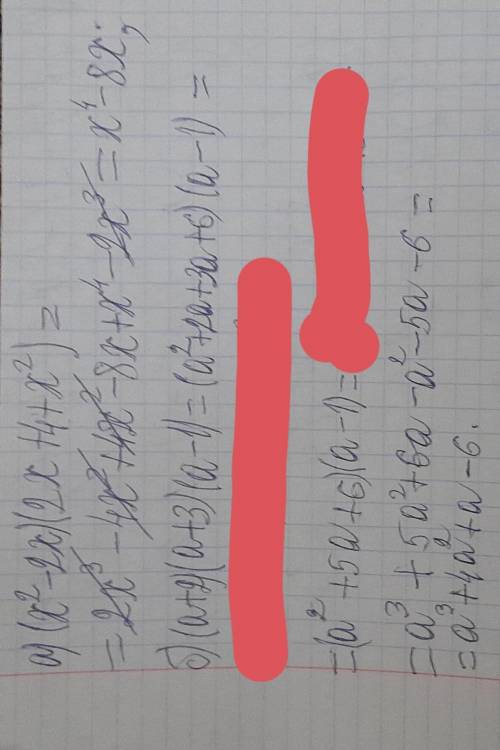 а) (x²-2x)(2x+4+x²) =
= 2x³-4x²+4x²-8x+x⁴-2x³ = x⁴-8x;
б) (a+2)(a+3)(a-1) = (a²+2a+3a+6)(a-1) =
= (a²+5a+6)(a-1) =
= a³+5a²+6a-a²-5a-6 =
= a³+4a²+a-6.